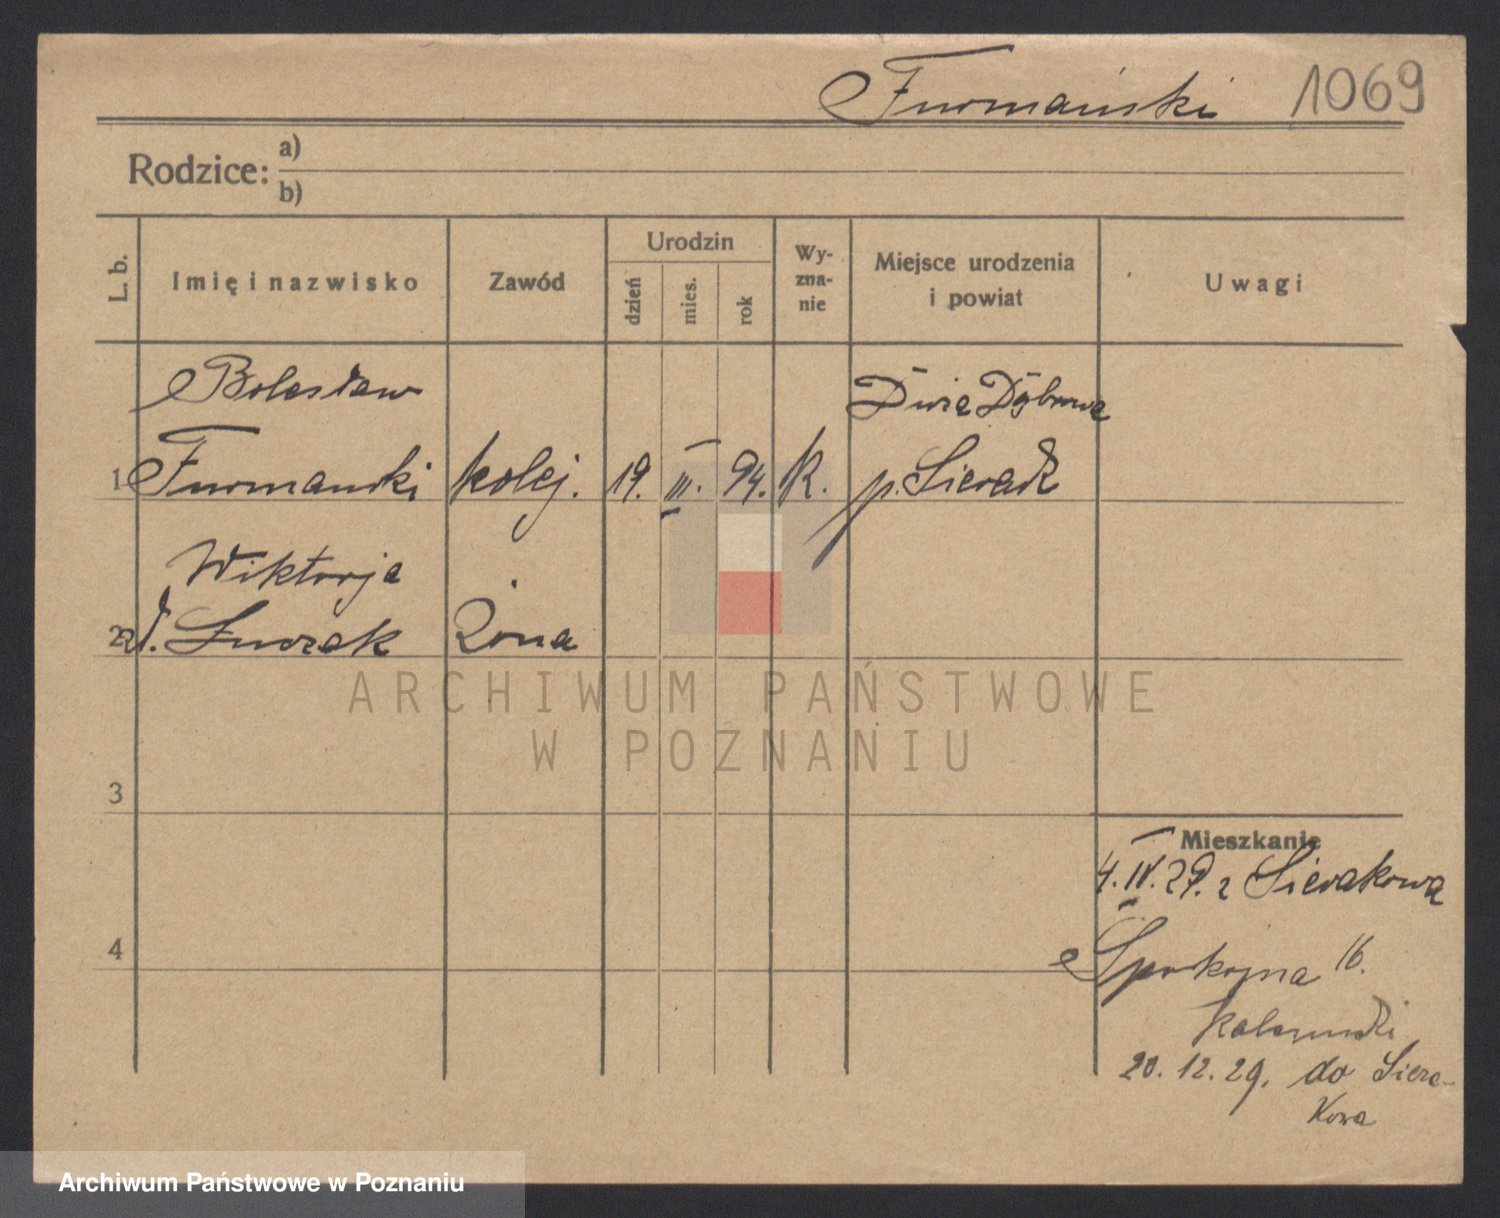 Furmański 1069
Rodzice: a)
b)
L. b.
Imię i nazwisko
Zawód
Urodzin
dzień
mies.
rok
Wy-
zna-
nie
Miejsce urodzenia
i powiat
Uwagi
Bolesław
1 Furmański kolej. 19. III. 94. k. p. Sieradz
Wiktorja
2 Żona
3
4
Mieszkanie
4. IV. 29. z Sierakowa
Spokojna 16.
20. 12. 29. do Siera-
kowa
ARCHIWUM PAŃSTWOWE
W POZNANIU
Archiwum Państwowe w Poznaniu